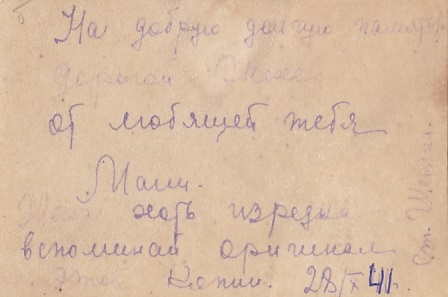 На добрую долгую память
дорогой
от любящей тебя
Мани.
хоть изредка
вспоминай оригинал
этой копии. 28/X 41 г.